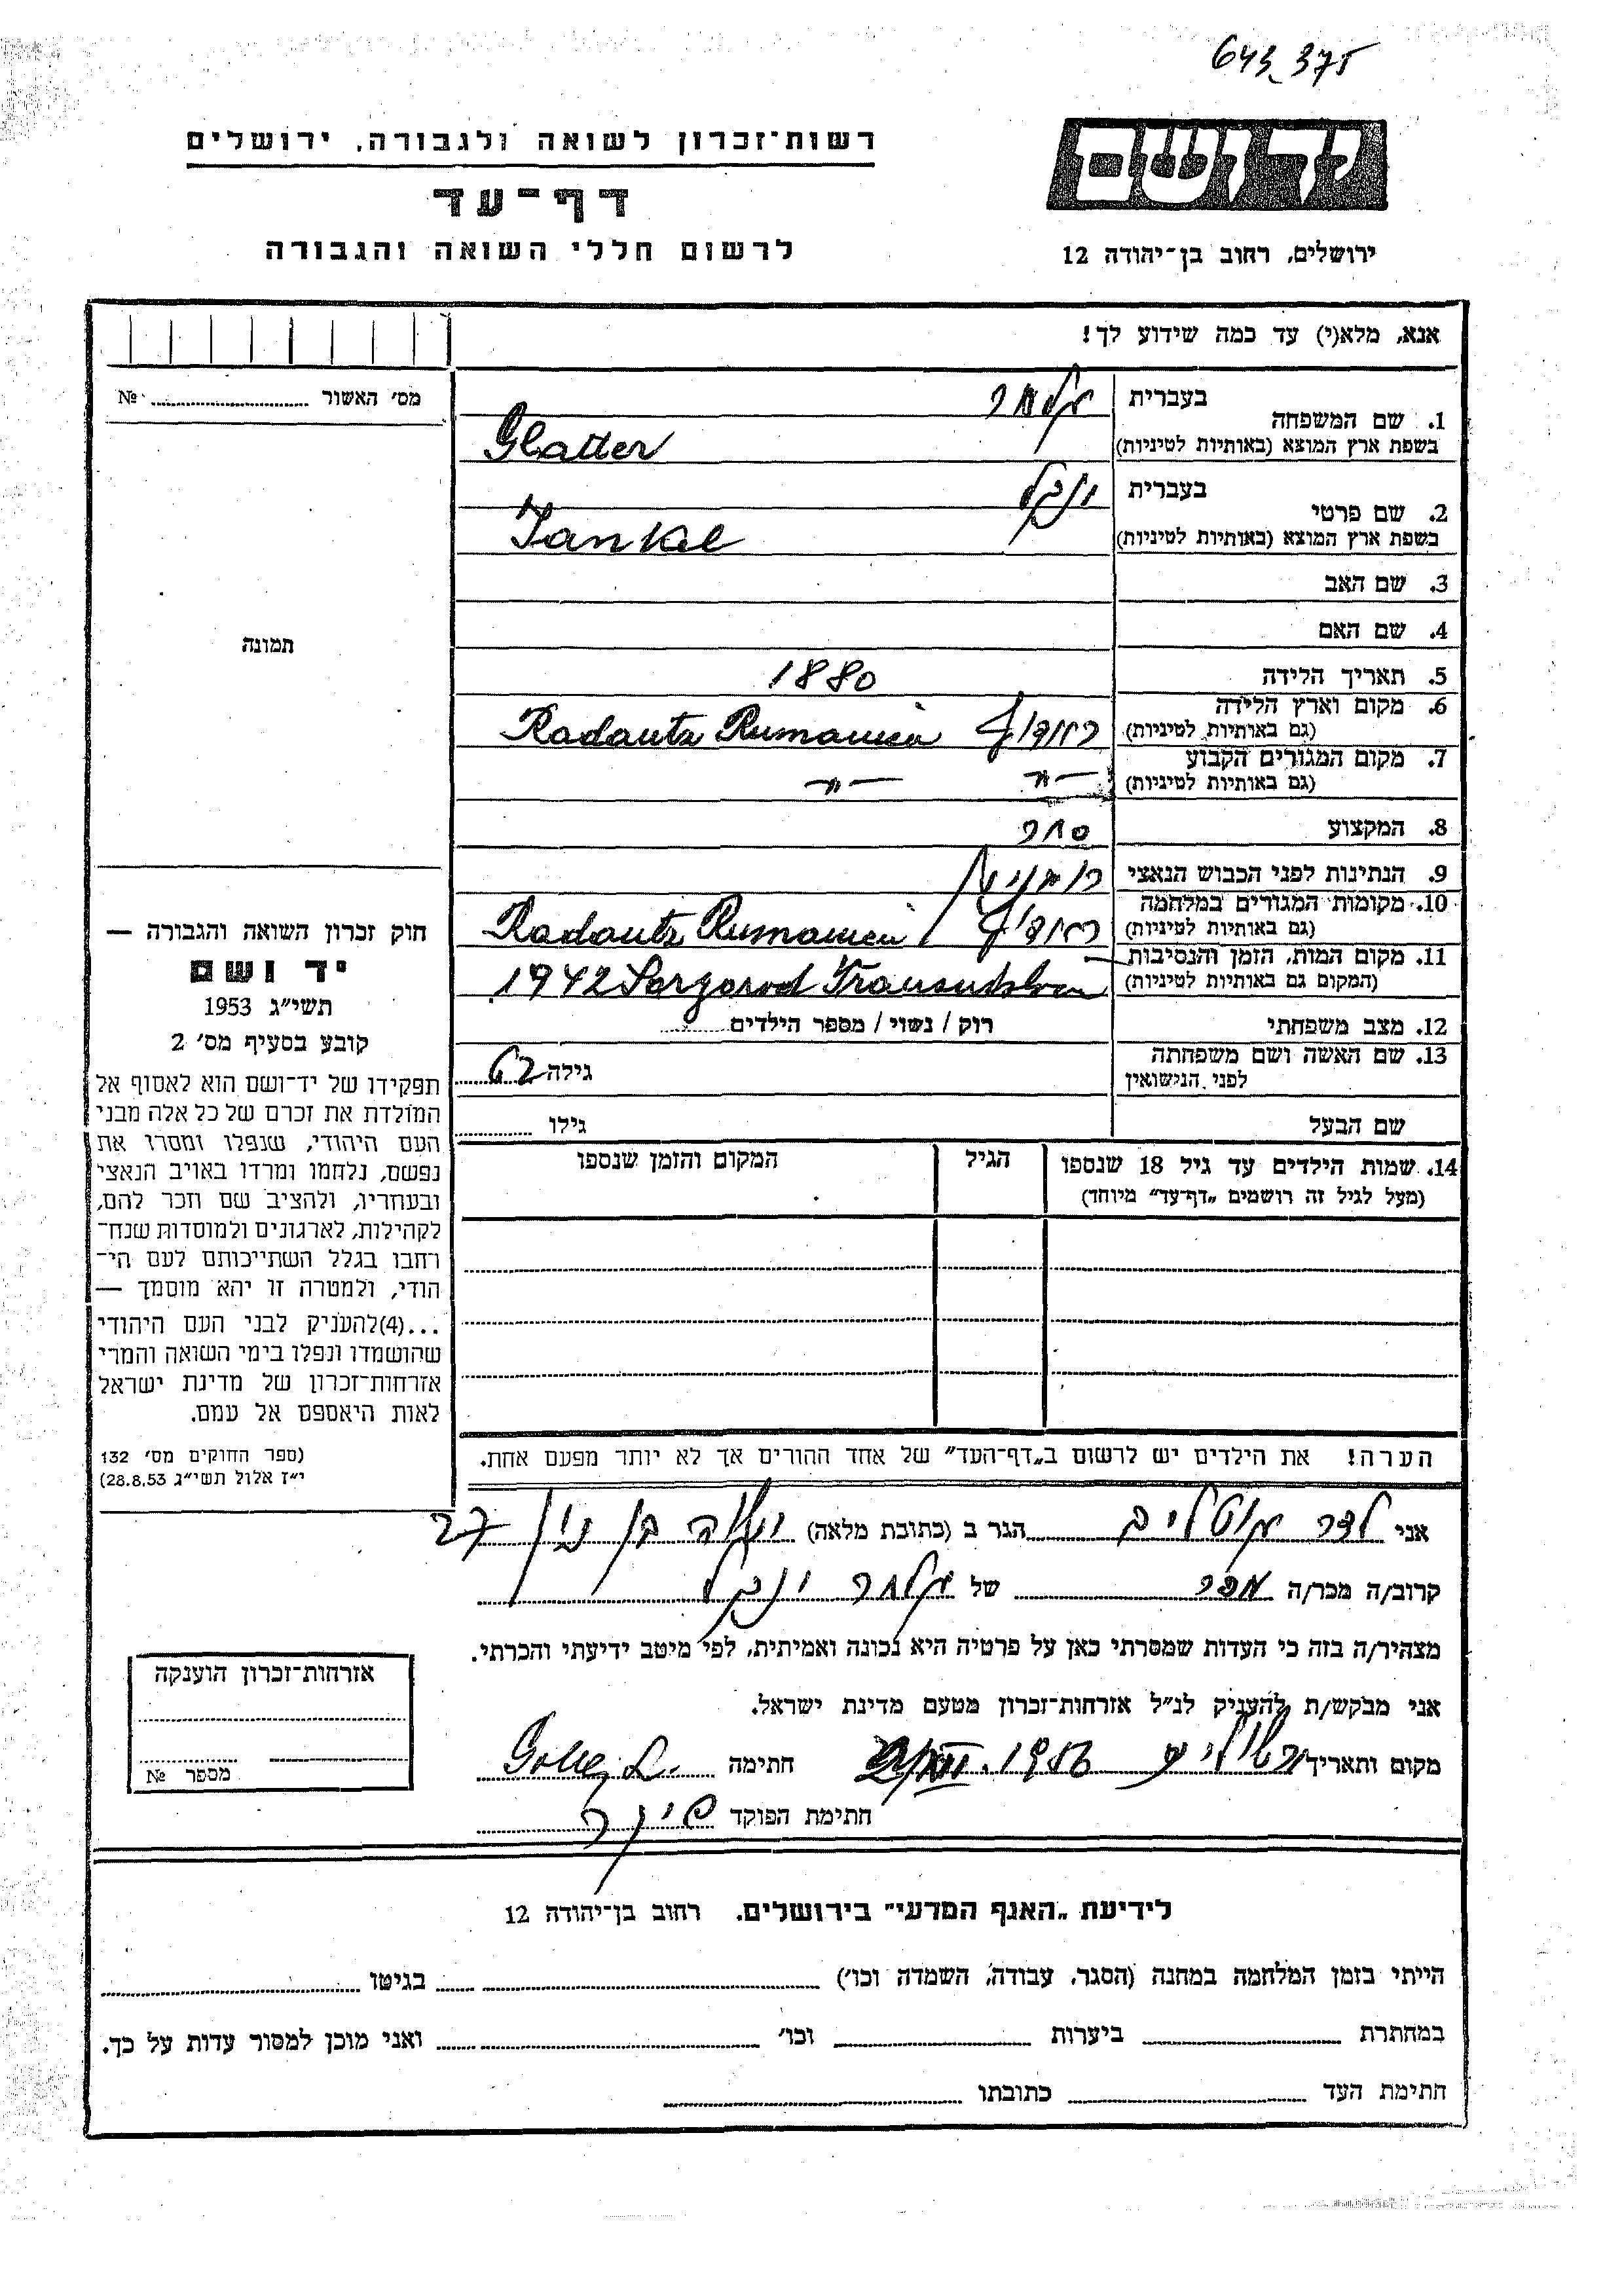 643_375
רשות־זכרון לשואה ולגבורה, ירושלים
יד ושם
דף־עד
לרשום חללי השואה והגבורה
ירושלים, רחוב בן־יהודה 12
אנא, מלא(י) עד כמה שידוע לך!
מס׳ האשור № ............
1. שם המשפחה בעברית גלטר
בשפת ארץ המוצא (באותיות לטיניות) Glatter
2. שם פרטי בעברית ינקל
בשפת ארץ המוצא (באותיות לטיניות) Jankel
3. שם האב
4. שם האם
תמונה
5. תאריך הלידה 1880
6. מקום וארץ הלידה (גם באותיות לטיניות) Radautz Rumanien
7. מקום המגורים הקבוע (גם באותיות לטיניות) —״— —״—
8. המקצוע סוחר
9. הנתינות לפני הכבוש הנאצי רומנית
10. מקומות המגורים במלחמה (גם באותיות לטיניות) Radautz Rumanien
11. מקום המות, הזמן והנסיבות (המקום גם באותיות לטיניות) 1942 Sargorod
12. מצב משפחתי רוק / נשוי / מספר הילדים
13. שם האשה ושם משפחתה לפני הנישואין גילה 62
שם הבעל גילו
14. שמות הילדים עד גיל 18 שנספו הגיל המקום והזמן שנספו
(מעל לגיל זה רושמים „דף־עד״ מיוחד)
חוק זכרון השואה והגבורה —
יד ושם
תשי״ג 1953
קובע בסעיף מס׳ 2
תפקידו של יד־ושם הוא לאסוף אל
המולדת את זכרם של כל אלה מבני
העם היהודי, שנפלו ומסרו את
נפשם, נלחמו ומרדו באויב הנאצי
ובעוזריו, ולהציב שם וזכר להם,
לקהילות, לארגונים ולמוסדות שנח־
רחבו בגלל השתייכותם לעם הי־
הודי, ולמטרה זו יהא מוסמך —
...(4)להעניק לבני העם היהודי
שהושמדו ונפלו בימי השואה והמרי
אזרחות־זכרון של מדינת ישראל
לאות היאספם אל עמם.
(ספר החוקים מס׳ 132
י״ז אלול תשי״ג 28.8.53)
הערה! את הילדים יש לרשום ב„דף־העד״ של אחד ההורים אך לא יותר מפעם אחת.
אני הגר ב (כתובת מלאה) 27
קרוב/ה מכר/ה מכר של גלטר ינקל
מצהיר/ה בזה כי העדות שמסרתי כאן על פרטיה היא נכונה ואמיתית, לפי מיטב ידיעתי והכרתי.
אני מבקש/ת להעניק לנ״ל אזרחות־זכרון מטעם מדינת ישראל.
מקום ותאריך 1956 חתימה
חתימת הפוקד
אזרחות־זכרון הוענקה
מספר №
לידיעת „האגף המדעי״ בירושלים. רחוב בן־יהודה 12
הייתי בזמן המלחמה במחנה (הסגר, עבודה, השמדה וכו׳) בגיטו
במחתרת ביערות וכו׳ ואני מוכן למסור עדות על כך.
חתימת העד כתובתו